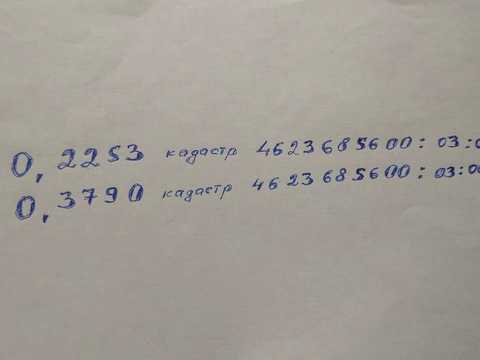 0,2253 кадастр 4623685600:03:0
0,3790 кадастр 4623685600:03:00